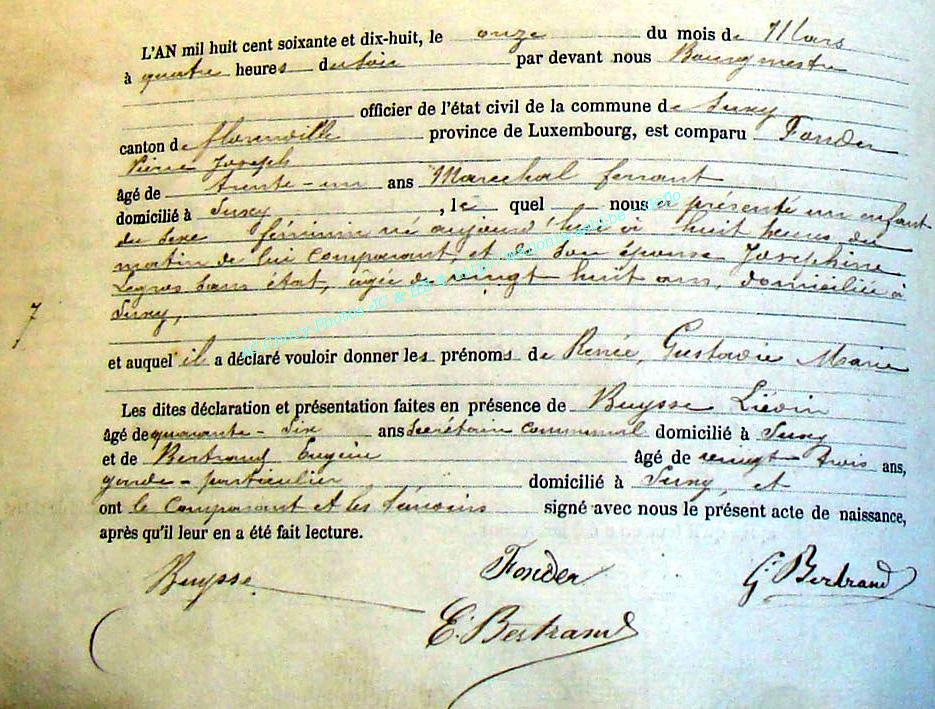 L'AN mil huit cent soixante et dix-huit, le onze du mois de Mars
à quatre heures du soir par devant nous Bourgmestre
officier de l'état civil de la commune de Suxy
canton de florenville province de Luxembourg, est comparu Fonder
Pierre Joseph
âgé de trente-un ans Marechal ferrant
domicilié à Suxy, le quel nous a présenté un enfant
du sexe féminin né aujourd'hui à huit heures du
matin de lui comparant, et de son épouse Josephine
Legros sans état, agée de vingt huit ans, domiciliée à
Suxy,
7
et auquel il a déclaré vouloir donner les prénoms de Renée, Gustavie Marie
Les dites déclaration et présentation faites en présence de Buysse Lievin
âgé de quarante-six ans Secrétaire communal domicilié à Suxy
et de Bertrand Eugène âgé de vingt trois ans,
garde-particulier domicilié à Suxy, et
ont le comparant et les témoins signé avec nous le présent acte de naissance,
après qu'il leur en a été fait lecture.
Buysse Fonder G. Bertrand
E. Bertrand